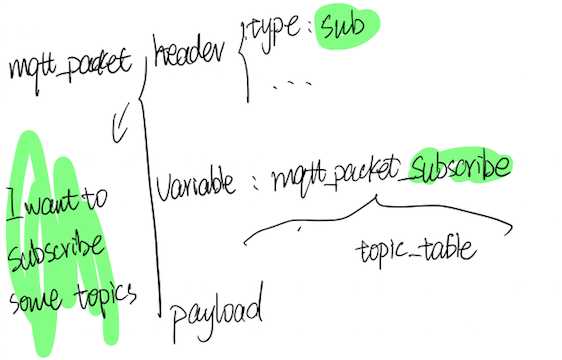 mqtt_packet
header
type: sub
...
Variable: mqtt_packet_subscribe
topic_table
payload
I want to
subscribe
some topics